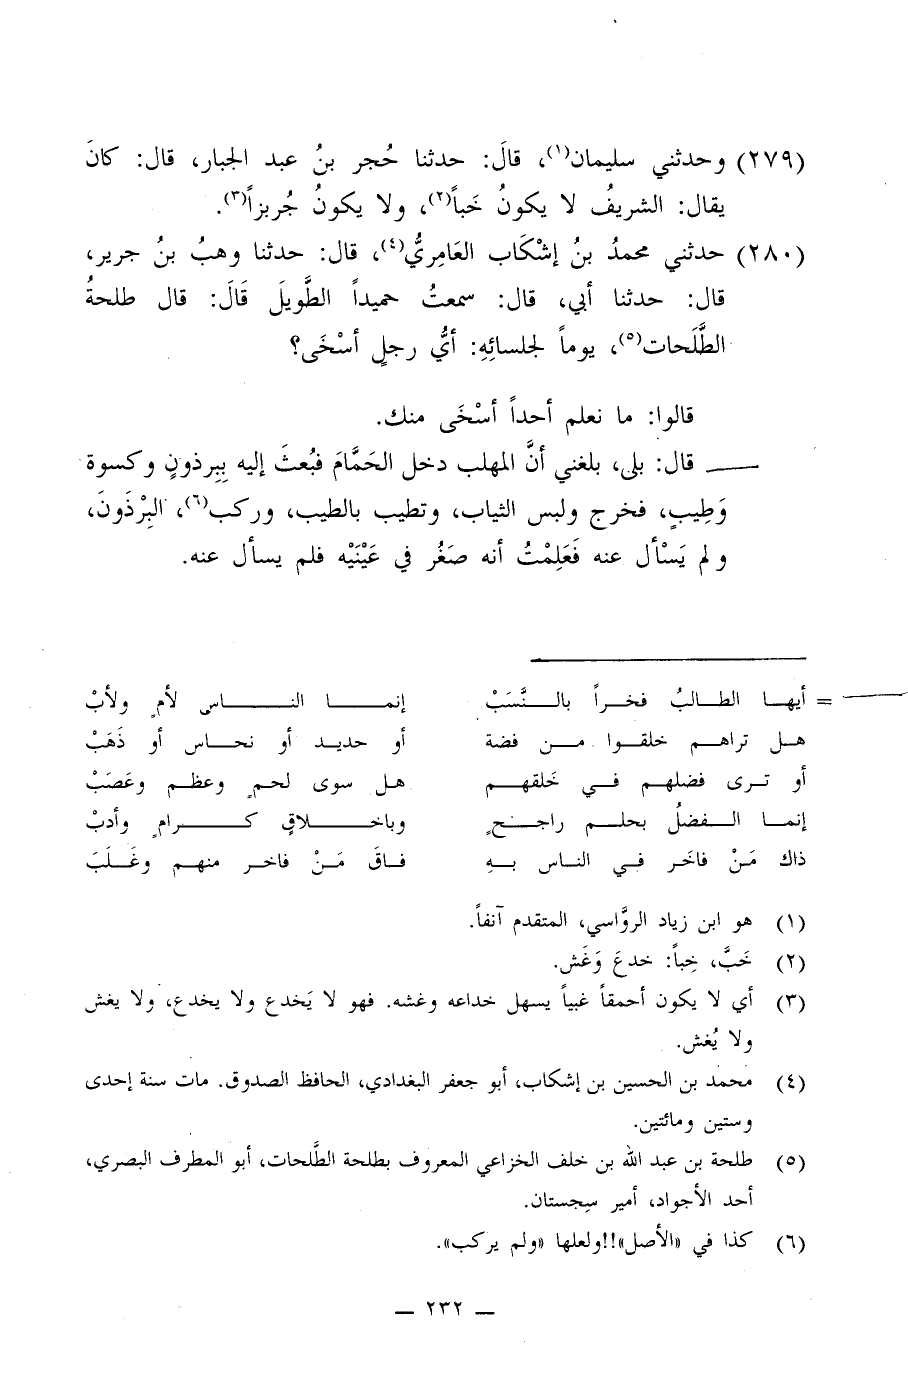 (٢٧٩) وحدثني سليمان(١)، قالَ: حدثنا حُجر بنُ عبد الجبار، قال: كانَ
يقال: الشريفُ لا يكونُ خَباً(٢)، ولا يكونُ جُربزاً(٣).
(٢٨٠) حدثني محمدُ بنُ إشْكَاب العَامِريُّ(٤)، قال: حدثنا وهبُ بنُ جرير،
قال: حدثنا أبي، قال: سمعتُ حميداً الطَّويلَ قَالَ: قال طلحةُ
الطَّلَحات(٥)، يوماً لجلسائِهِ: أيُّ رجلٍ أسْخَى؟
قالوا: ما نعلم أحداً أسْخَى منك.
قال: بلى، بلغني أنَّ المهلب دخل الحَمَّامَ فبُعثَ إليه بِبِرذونٍ وكسوة
وَطِيبٍ، فخرج ولبس الثياب، وتطيب بالطيب، وركب(٦)، البِرْذَونَ،
ولم يَسْأل عنه فَعَلِمْتُ أنه صَغُر في عَيْنَيْه فلم يسأل عنه.
= أيهـا الطـالبُ فخـراً بالـنَّسَبْ إنمـا النـاس لأمٍ ولأبْ
هـل تراهـم خلقـوا مـن فضة أو حديـد أو نحـاس أو ذَهَبْ
أو تـرى فضلهـم فـي خَلقهـم هـل سوى لحـمٍ وعظـم وعَصَبْ
إنمـا الـفضلُ بحلـم راجـحٍ وباخـلاقٍ كـرامٍ وأدبْ
ذاك مَـنْ فاخَـر فـي النـاس بـهِ فـاقَ مَـنْ فاخـر منهـم وغَـلَبَ
(١) هو ابن زياد الروَّاسي، المتقدم آنفاً.
(٢) خَبَّ، خِباً: خدعَ وَغَش.
(٣) أي لا يكون أحمقاً غبياً يسهل خداعه وغشه. فهو لا يَخدع ولا يخدع، ولا يغش
ولا يُغش.
(٤) محمد بن الحسين بن إشكاب، أبو جعفر البغدادي، الحافظ الصدوق. مات سنة إحدى
وستين ومائتين.
(٥) طلحة بن عبد الله بن خلف الخزاعي المعروف بطلحة الطَّلحات، أبو المطرف البصري،
أحد الأجواد، أمير سِجستان.
(٦) كذا في «الأصل»!!ولعلها «ولم يركب».
— ٢٣٢ —